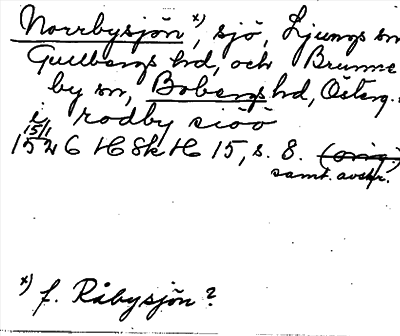 Norrbysjön x), sjö, Ljungs sn
Gullbergs hd, och Brunne
by sn, Bobergs hd, Österg.
i rodby siöö
15/1
1526 HSkH 15, s. 8. (orig.)
samt. avskr.
x) f. Råbysjön?